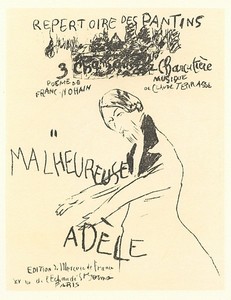 REPERTOIRE DES PANTINS
3 Chansons à la Charcutière
POËMES DE
FRANC-NOHAIN
MUSIQUE
DE CLAUDE TERRASSE
"MALHEUREUSE
ADÈLE
EDITION du Mercure de France
XV rue de l'Echaudé St Germain
PARIS